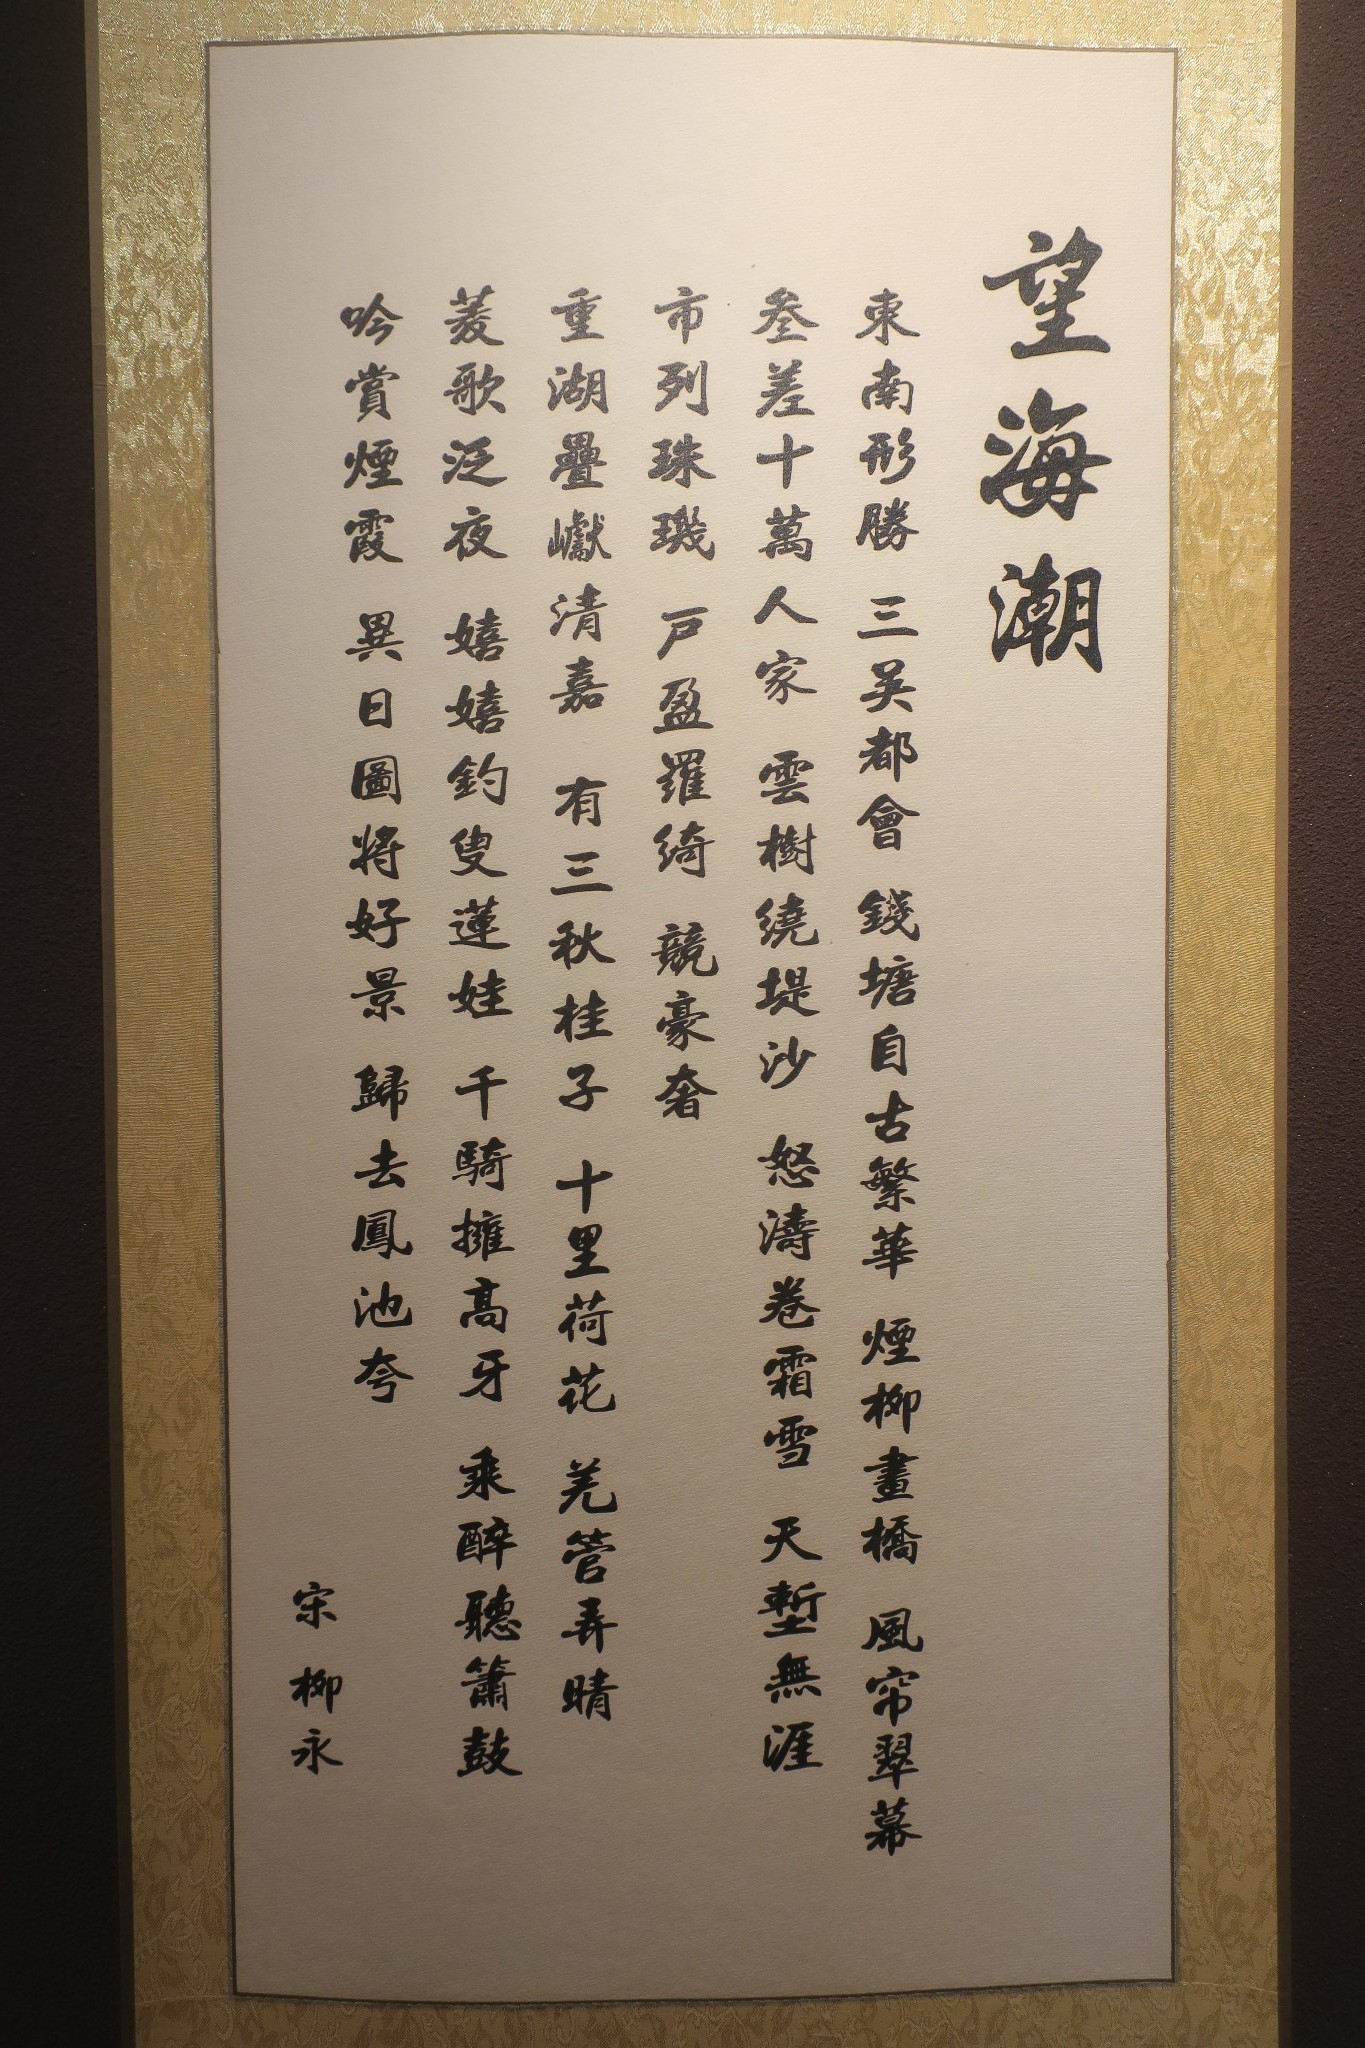 望海潮
東南形勝 三吴都會 錢塘自古繁華 煙柳畫橋 風帘翠幕
叄差十萬人家 雲樹繞堤沙 怒濤卷霜雪 天塹無涯
市列珠璣 戸盈羅綺 競豪奢
重湖疊巘清嘉 有三秋桂子 十里荷花 羌管弄晴
菱歌泛夜 嬉嬉釣叟蓮娃 千騎擁高牙 乘醉聽簫鼓
吟賞煙霞 異日圖將好景 歸去鳳池夸
宋 柳永